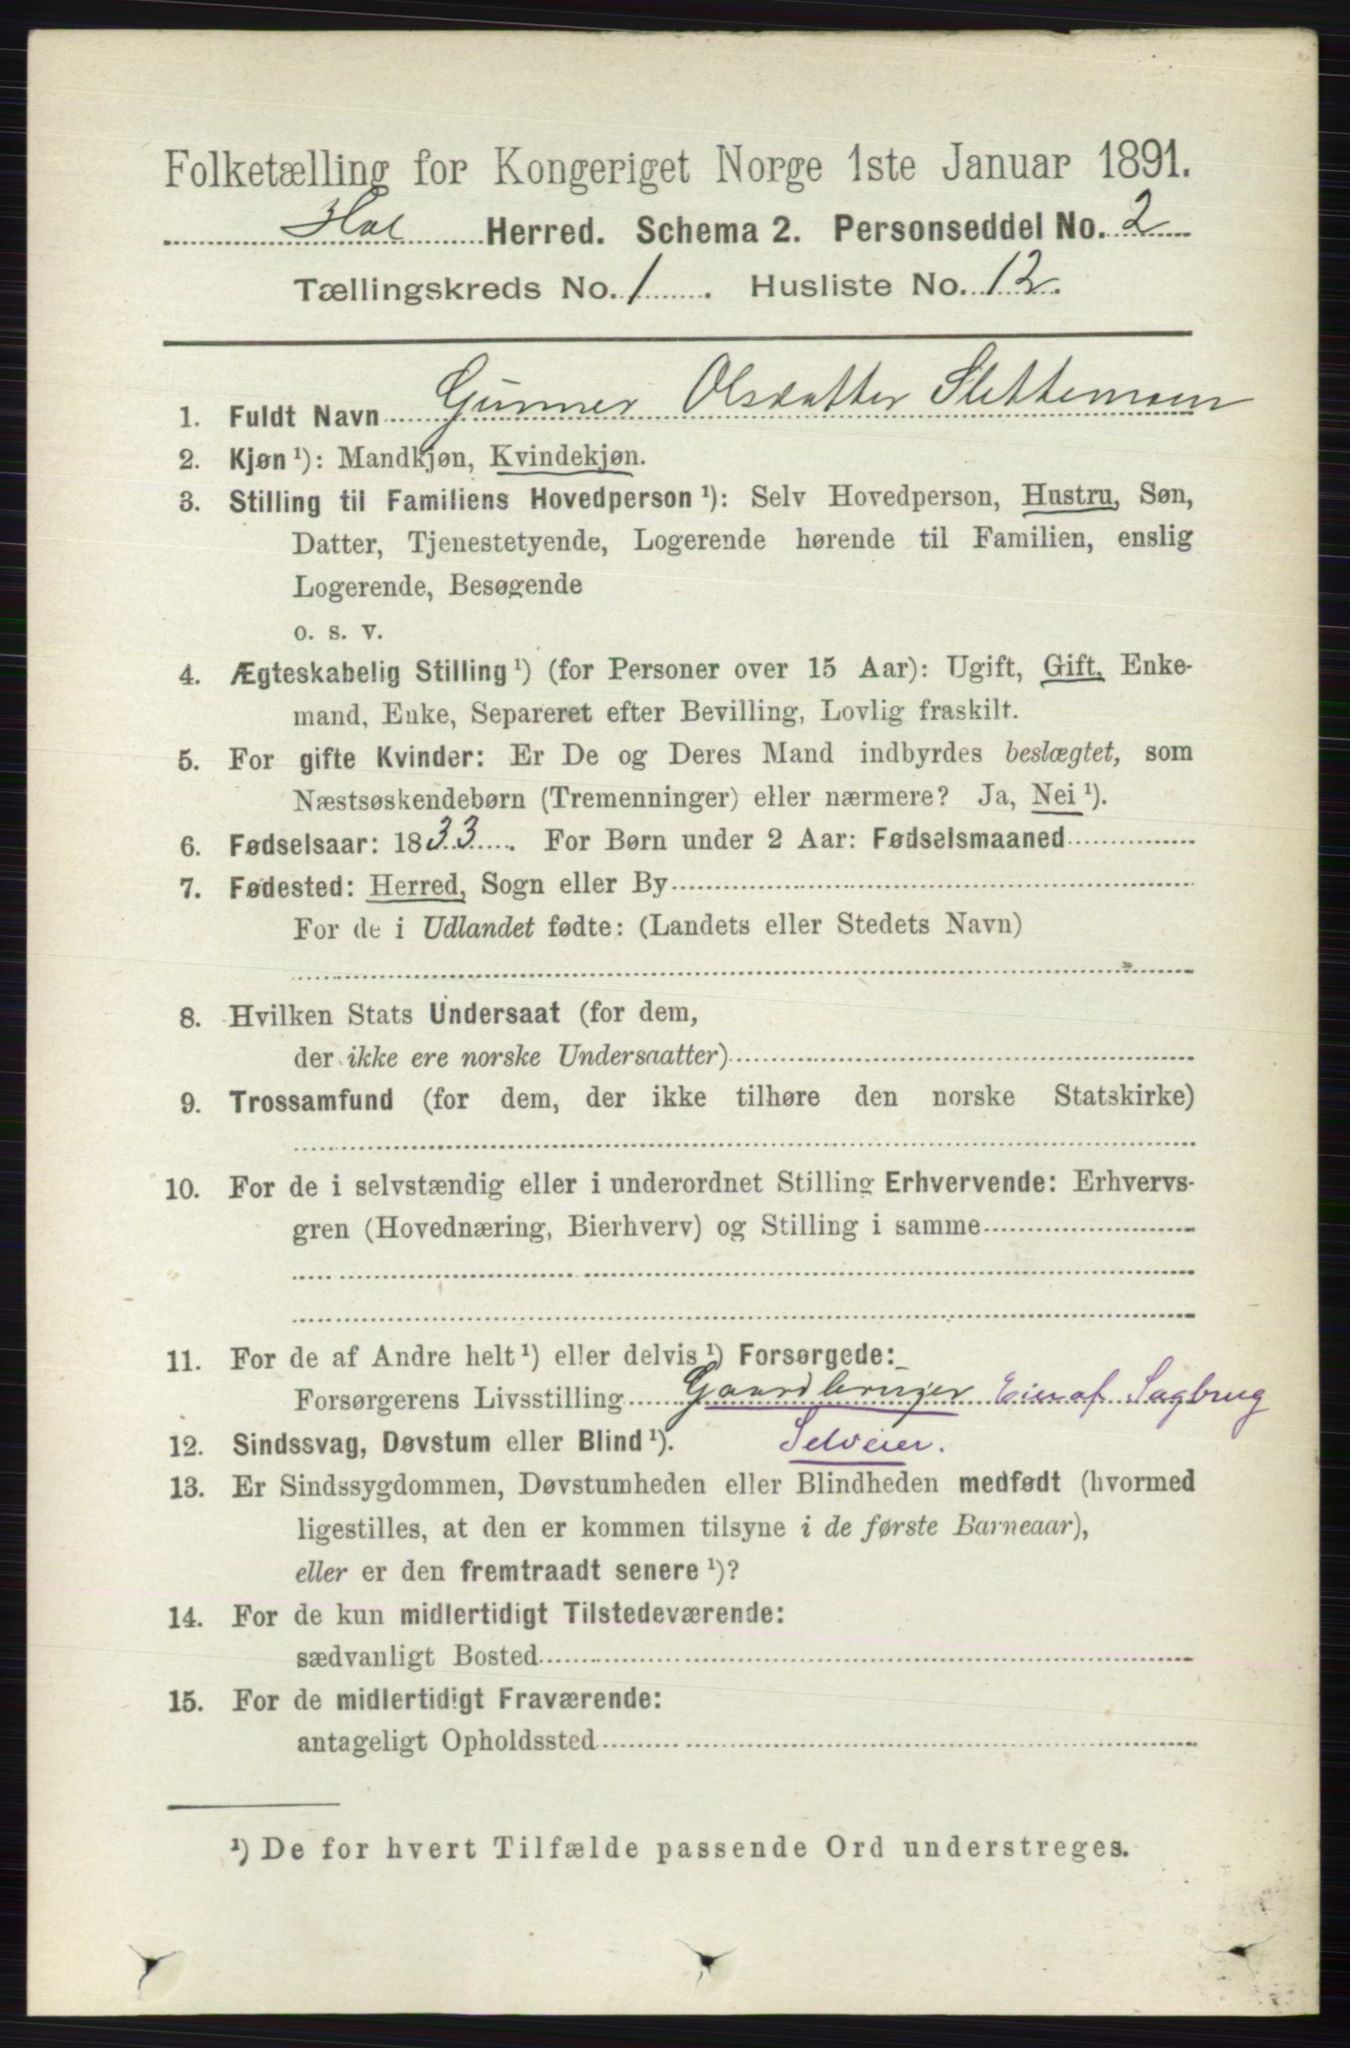 Folketælling for Kongeriget Norge 1ste Januar 1891.
Hol Herred. Schema 2. Personseddel No. 2
Tællingskreds No. 1. Husliste No. 12.
1. Fuldt Navn Gunner Olsdatter Slettemoen
2. Kjøn ¹): Mandkjøn, Kvindekjøn.
3. Stilling til Familiens Hovedperson ¹): Selv Hovedperson, Hustru, Søn,
Datter, Tjenestetyende, Logerende hørende til Familien, enslig
Logerende, Besøgende
o. s. v.
4. Ægteskabelig Stilling ¹) (for Personer over 15 Aar): Ugift, Gift, Enke-
mand, Enke, Separeret efter Bevilling, Lovlig fraskilt.
5. For gifte Kvinder: Er De og Deres Mand indbyrdes beslægtet, som
Næstsøskendebørn (Tremenninger) eller nærmere? Ja, Nei ¹).
6. Fødselsaar: 1833. For Børn under 2 Aar: Fødselsmaaned
7. Fødested: Herred, Sogn eller By
For de i Udlandet fødte: (Landets eller Stedets Navn)
8. Hvilken Stats Undersaat (for dem,
der ikke ere norske Undersaatter)
9. Trossamfund (for dem, der ikke tilhøre den norske Statskirke)
10. For de i selvstændig eller i underordnet Stilling Erhvervende: Erhvervs-
gren (Hovednæring, Bierhverv) og Stilling i samme
11. For de af Andre helt ¹) eller delvis ¹) Forsørgede:
Forsørgerens Livsstilling Gaardbruger Eier af Sagbrug
12. Sindssvag, Døvstum eller Blind ¹). Selveier.
13. Er Sindssygdommen, Døvstumheden eller Blindheden medfødt (hvormed
ligestilles, at den er kommen tilsyne i de første Barneaar),
eller er den fremtraadt senere ¹)?
14. For de kun midlertidigt Tilstedeværende:
sædvanligt Bosted
15. For de midlertidigt Fraværende:
antageligt Opholdssted
¹) De for hvert Tilfælde passende Ord understreges.